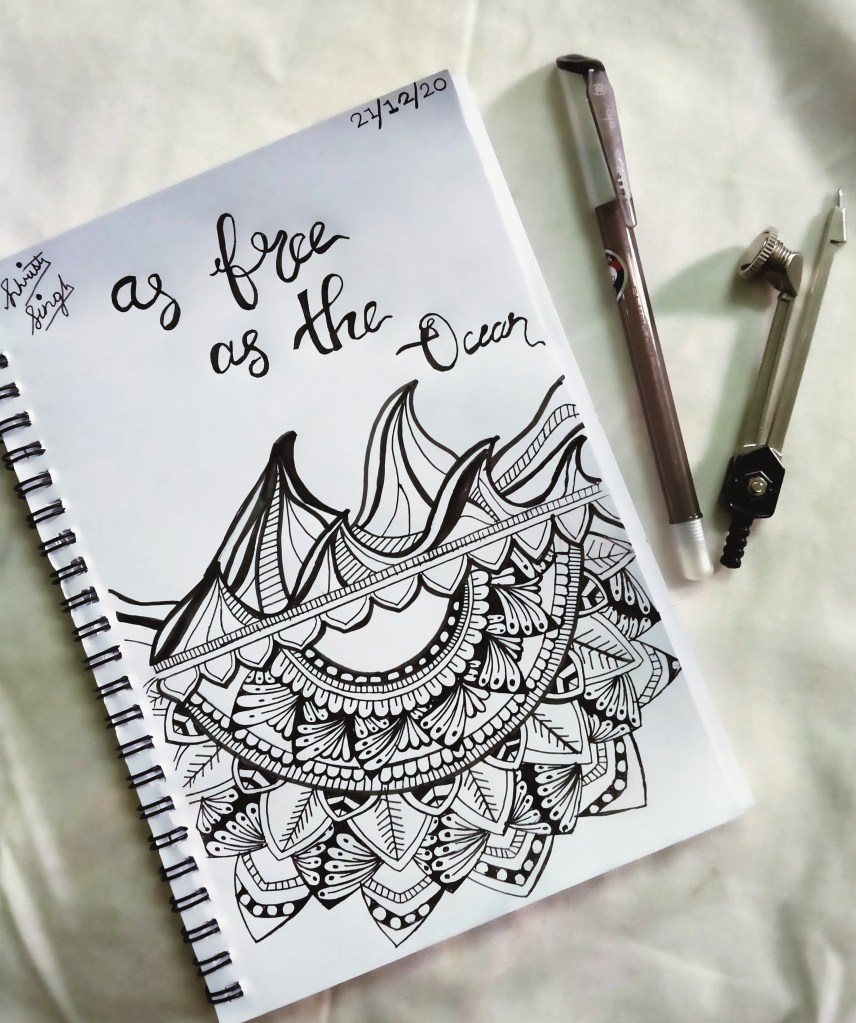 21/12/20
Singh
as free
as the Ocean